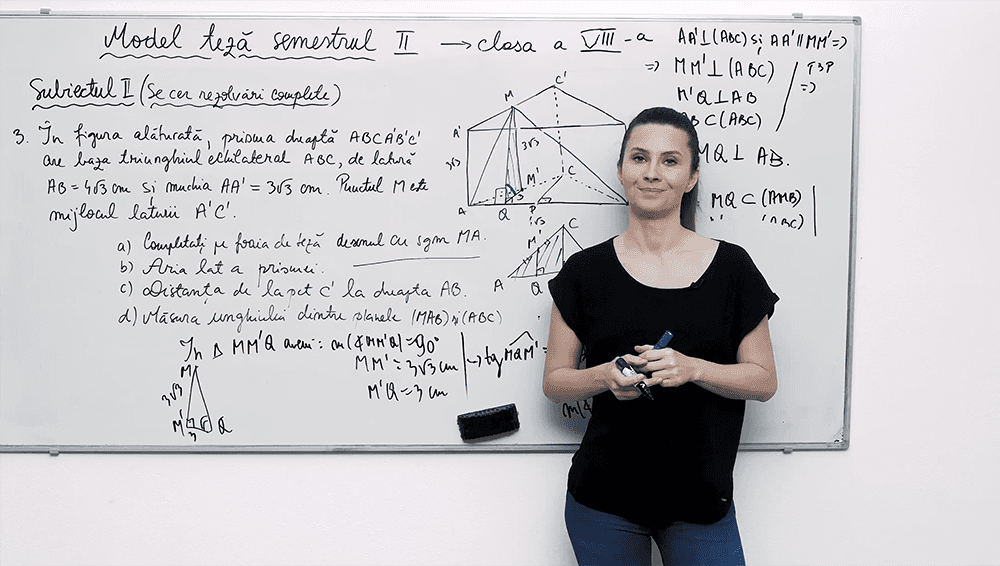 Model teză semestrul II → clasa a VIII-a
Subiectul II (Se cer rezolvări complete)
3. În figura alăturată, prisma dreaptă ABCA'B'C'
are baza triunghiul echilateral ABC, de latură
AB = 4√3 cm și muchia AA' = 3√3 cm. Punctul M este
mijlocul laturii A'C'.
a) Completați pe foaia de teză desenul cu sgm MA.
b) Aria lat a prismei.
c) Distanța de la pct C' la dreapta AB.
d) Măsura unghiului dintre planele (MAB) și (ABC)
În Δ MM'Q avem: m(∢MM'Q) = 90°
MM' = 3√3 cm
M'Q = 3 cm
→ tg MQM' =
M
3√3
M'
3
Q
C'
M
A'
3√3
3√3
M'
C
A
Q
P
C
M'
A
Q
AA' ⊥ (ABC) și AA' ∥ MM' =>
=> MM' ⊥ (ABC)
M'Q ⊥ AB
AB ⊂ (ABC)
T3P
=>
MQ ⊥ AB.
MQ ⊂ (AMB)
m(∢